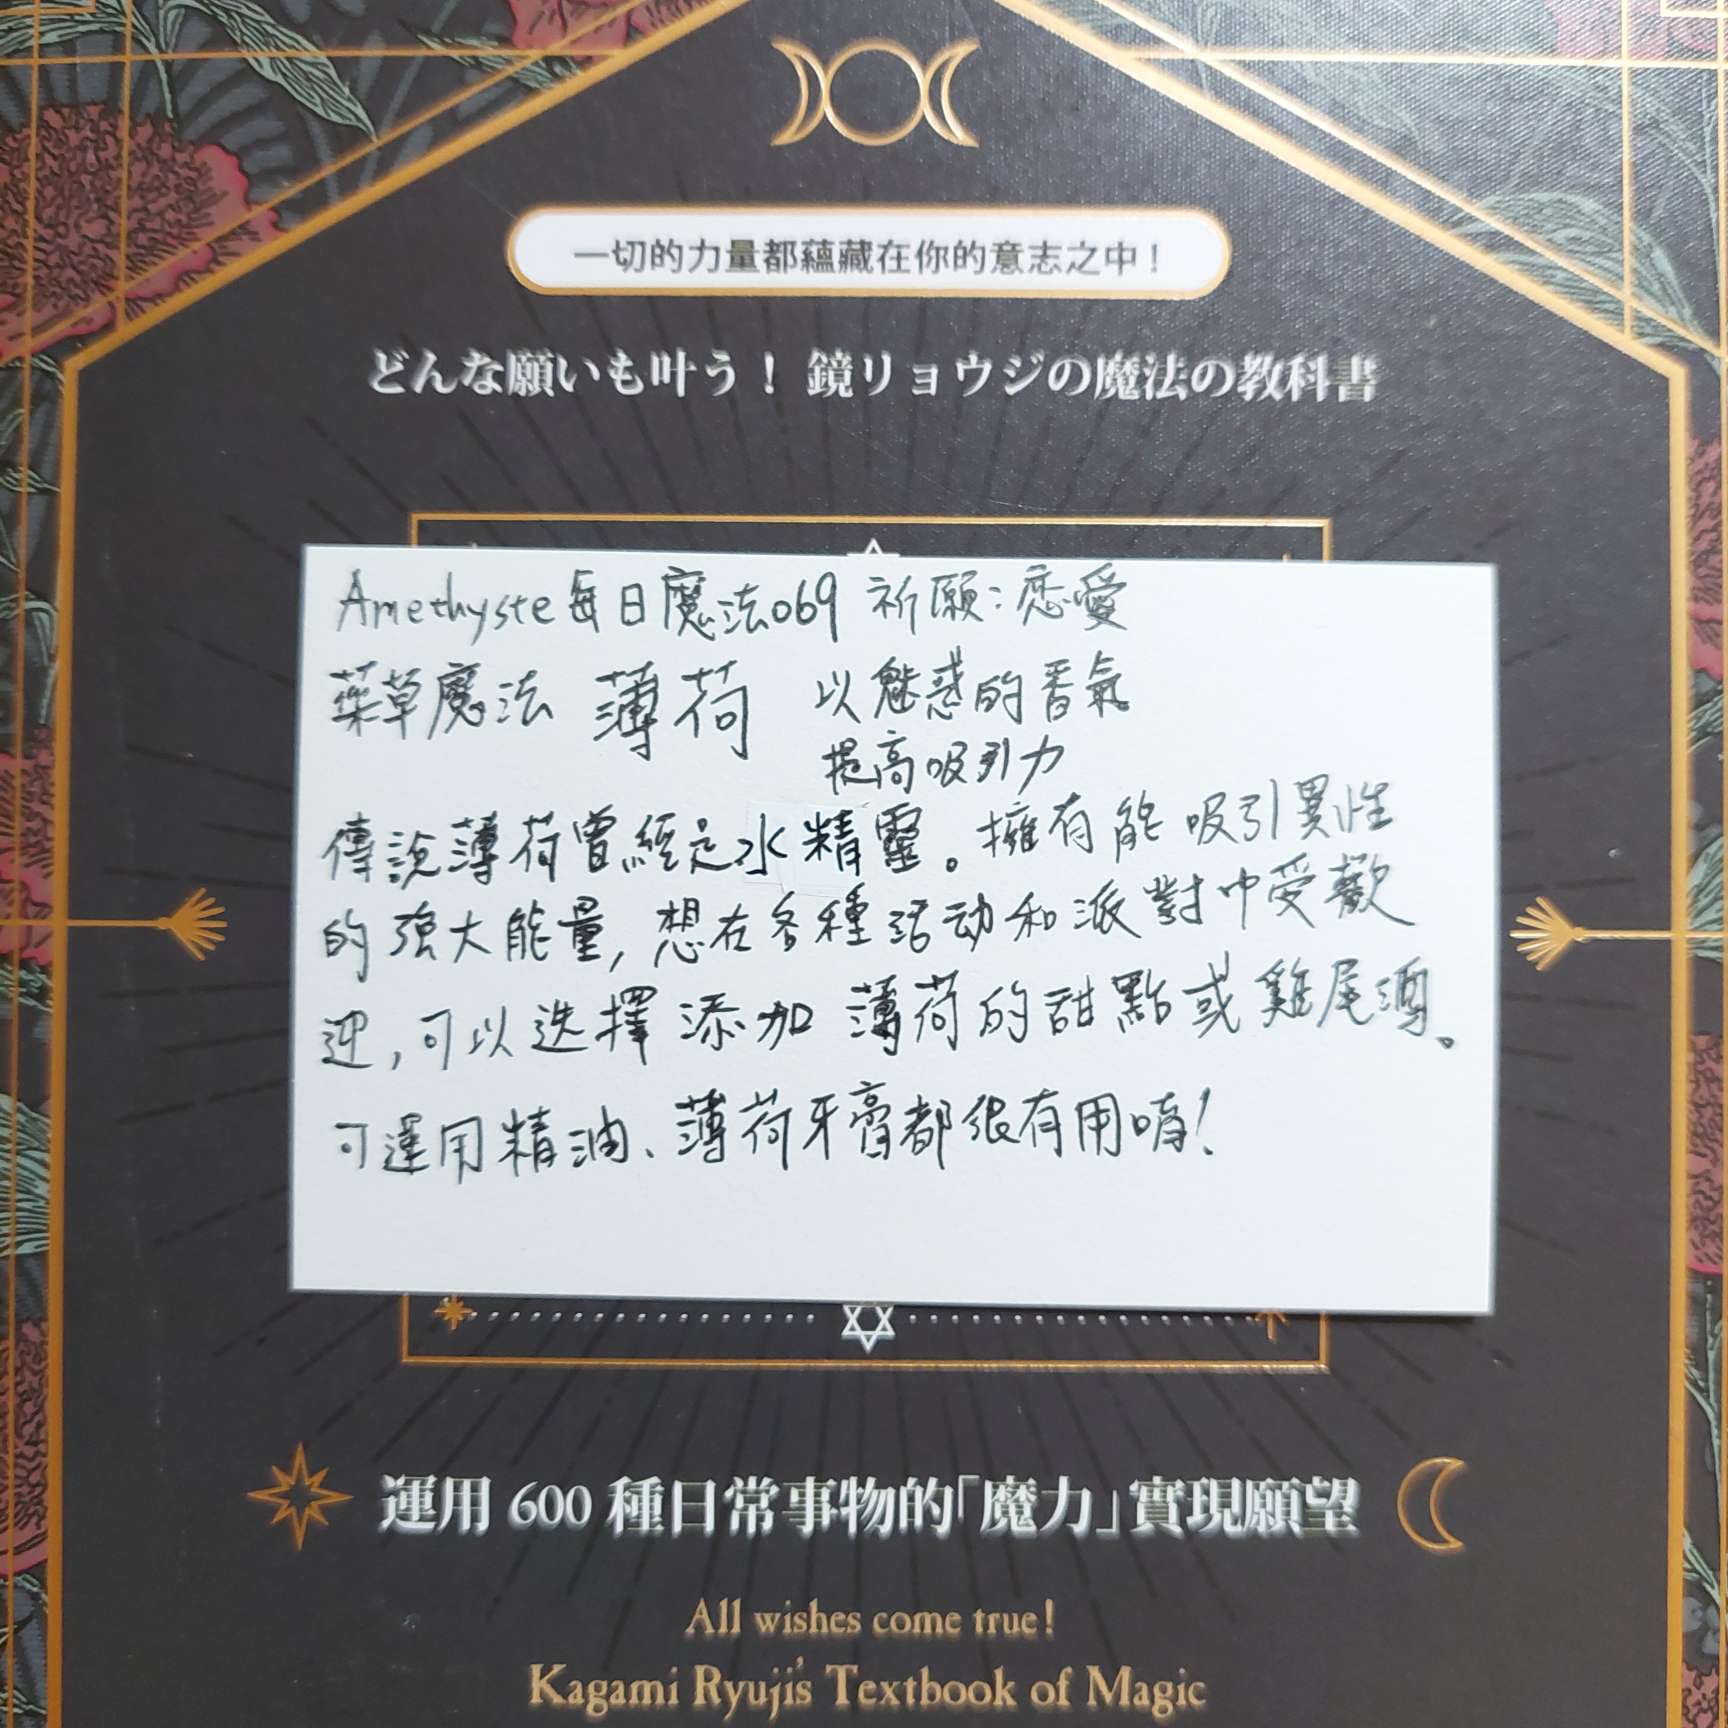 一切的力量都蘊藏在你的意志之中！
どんな願いも叶う！ 鏡リョウジの魔法の教科書
Amethyste每日魔法069 祈願：戀愛
藥草魔法 薄荷 以魅惑的香氣
提高吸引力
傳說薄荷曾經是水精靈。擁有能吸引異性
的強大能量，想在各種活动和派對中受歡
迎，可以选擇添加薄荷的甜點或雞尾酒。
可運用精油、薄荷牙膏都很有用唷！
運用 600 種日常事物的「魔力」實現願望
All wishes come true!
Kagami Ryuji's Textbook of Magic